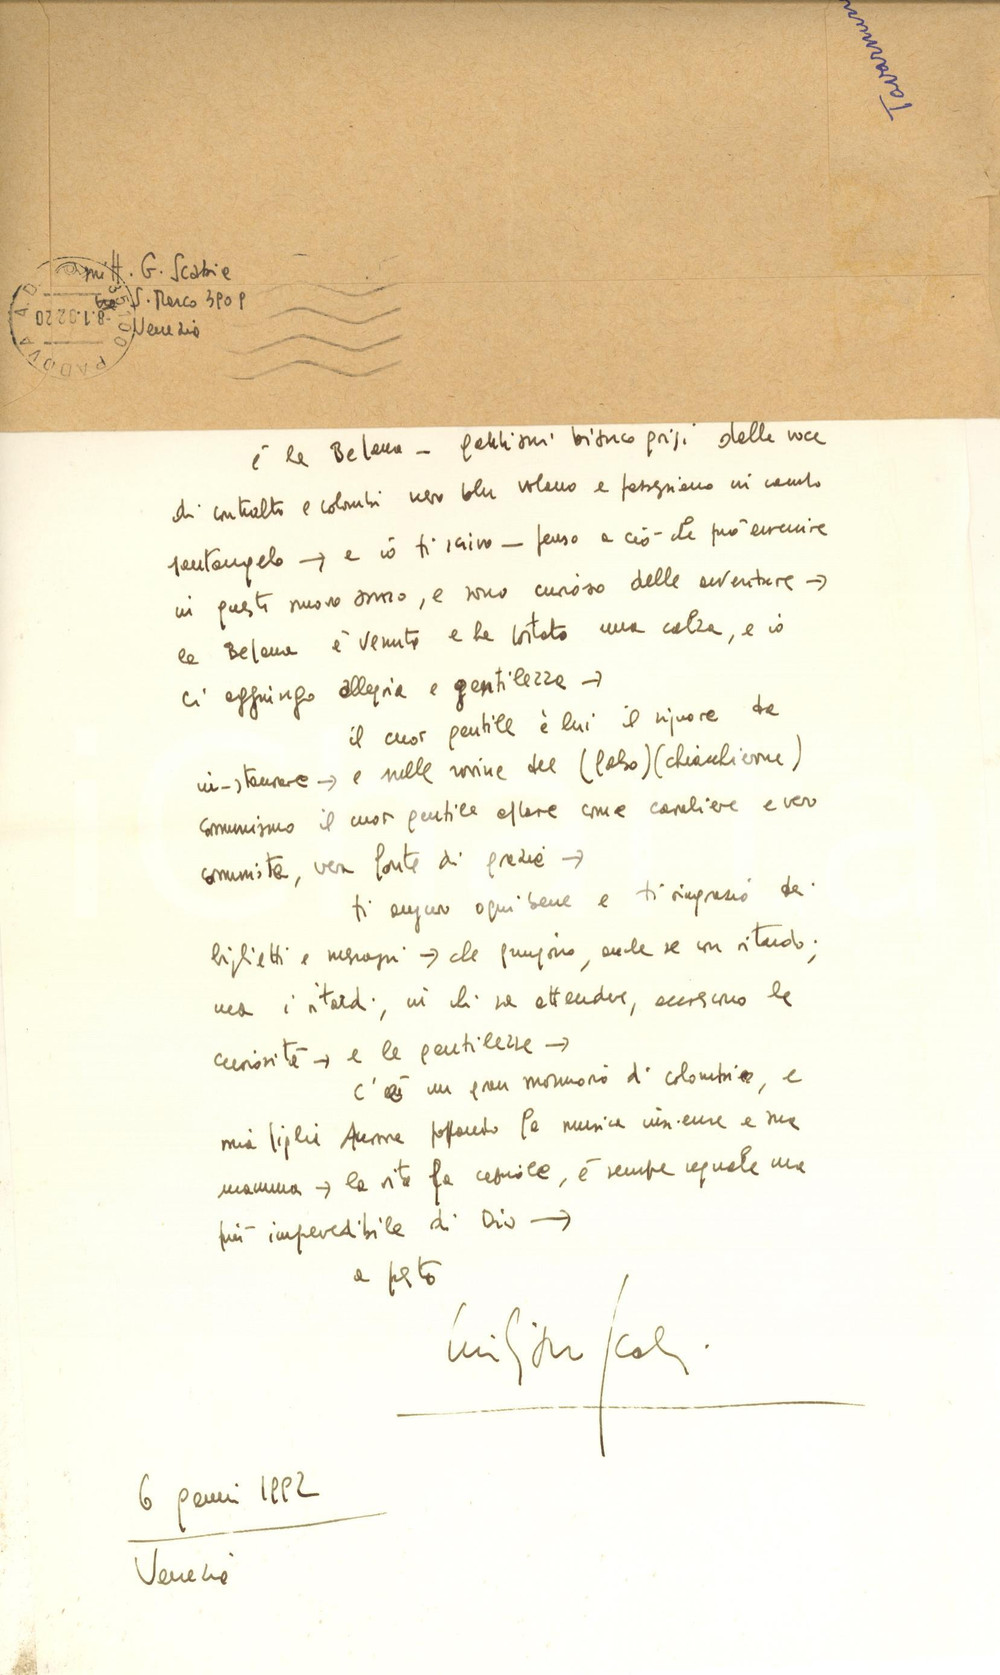 Tavarnun
mitt. G. Scabia
S. Marco 3909
Venezia
35100 PADOVA A.D.
-8.1.92 20
è la Befana — gabbiani bianco grigi dalla voce
di contralto e colombi nero blu volano e passeggiano in campo
santangelo → e io ti scrivo — penso a ciò che può avvenire
in questo nuovo anno, e sono curioso delle avventure →
la Befana è venuta e ha portato una calza, e io
ci aggiungo allegria e gentilezza →
il cuor gentile è lui il signore da
in-staurare → e nelle rovine del (falso) (chiacchierone)
comunismo il cuor gentile appare come cavaliere e vero
comunista, vera fonte di grazie →
ti auguro ogni bene e ti ringrazio dei
biglietti e messaggi → che giungono, anche se con ritardo;
ma i ritardi, in chi sa attendere, accrescono la
curiosità → e la gentilezza →
c'è un gran mormorio di colombi, e
mia figlia Aurora fa musica insieme a sua
mamma → la vita fa capriole, è sempre uguale ma
più imprevedibile di Dio →
a presto
Giuliano Scabia.
6 genn. 1992
Venezia